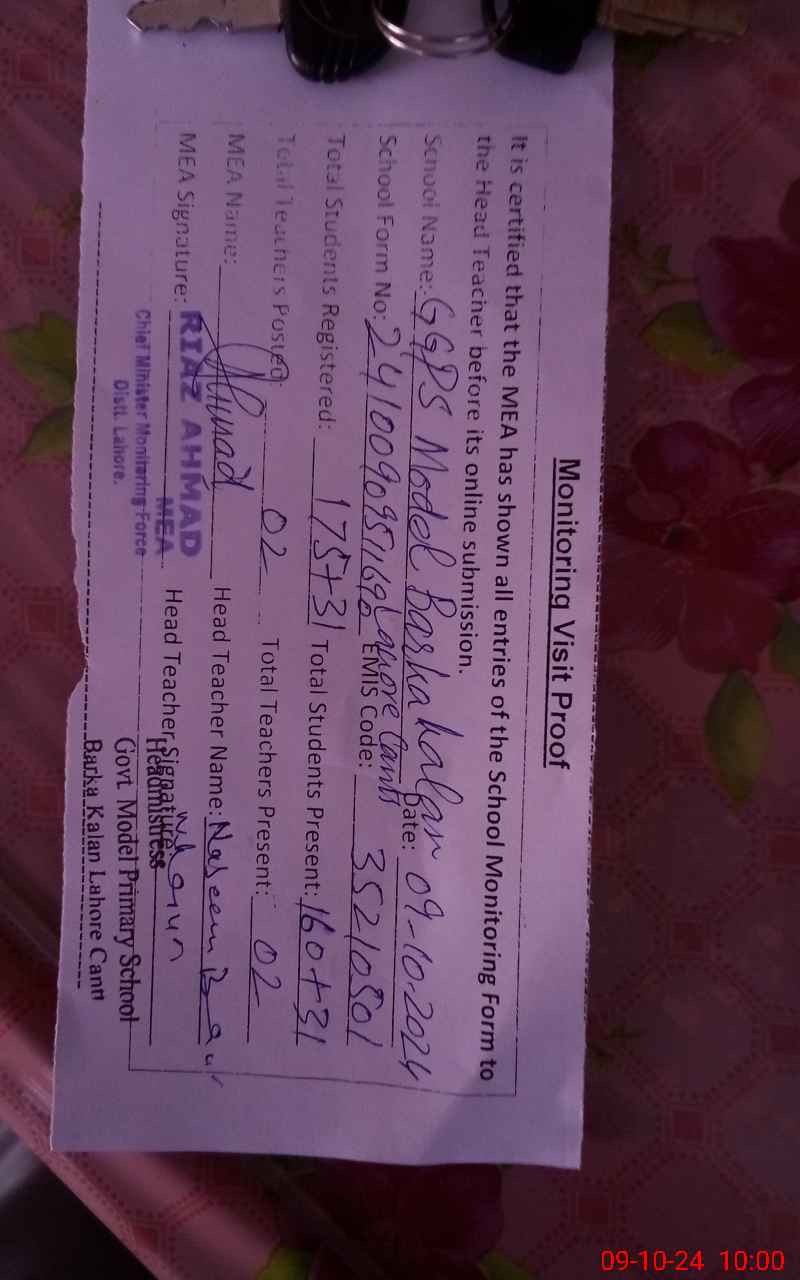 Monitoring Visit Proof
It is certified that the MEA has shown all entries of the School Monitoring Form to
the Head Teacher before its online submission.
School Name: GGPS Model Barka kalan Date: 09-10-2024
Lahore Cantt
School Form No: EMIS Code: 35210301
Total Students Registered: 175+31 Total Students Present: 160+31
Total Teachers Posted: 02 Total Teachers Present: 02
MEA Name: Ahmad Head Teacher Name: Naseem
MEA Signature: Head Teacher Signature
RIAZ AHMAD
MEA
Chief Minister Monitoring Force
Distt. Lahore.
Headmistress
Govt Model Primary School
Barka Kalan Lahore Cantt
09-10-24 10:00